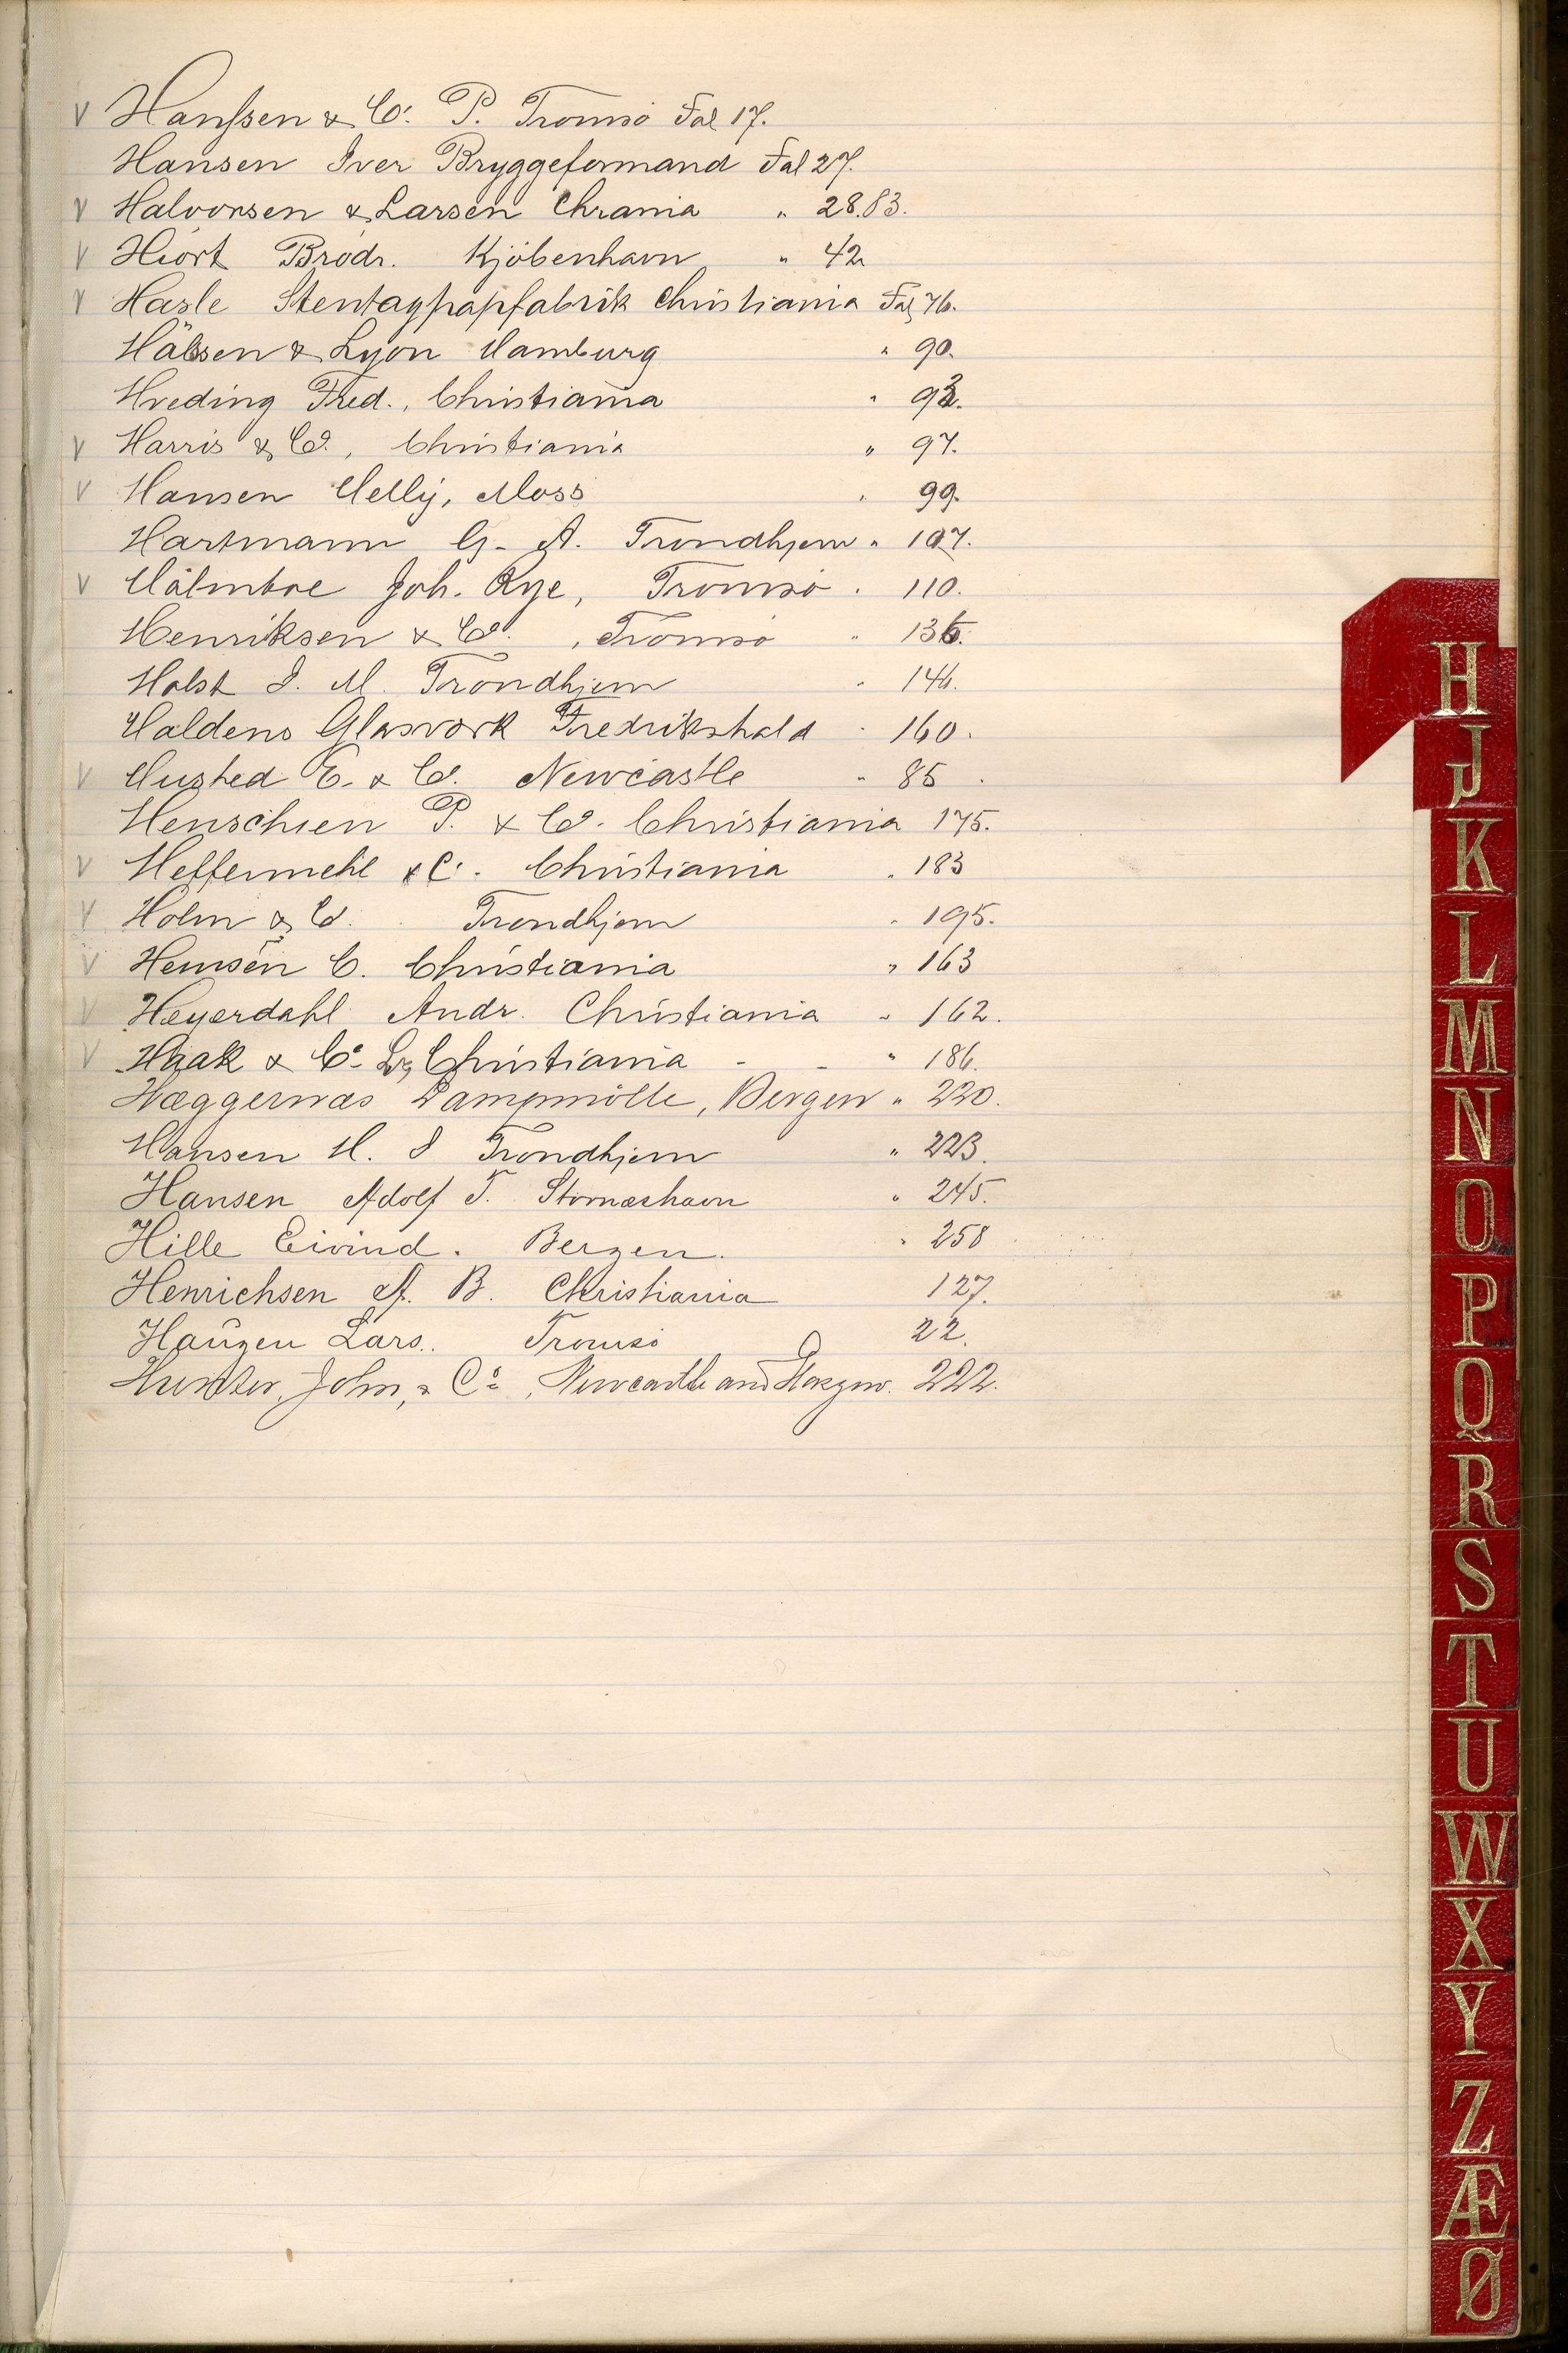 V Hanssen & Co. P. Tromsö Fol 17.
Hansen Iver Bryggeformand Fol 27.
V Halvorsen & Larsen Chrania " 28.83.
V Hiort Brödr. Kjöbenhavn " 42
V Hasle Stentagpapfabrik Christiania Fol 76.
Hälssen & Lyon Hamburg " 90.
Hveding Fred., Christiania " 93.
V Harris & Co., Christiania " 97.
V Hansen Helly, Moss " 99.
Hartmann G. A. Trondhjem " 107.
V Holmboe Joh. Rye, Tromsö " 110.
Henriksen & Co., Tromsö " 136.
Holst I. M. Trondhjem " 146.
Haldens Glasværk Fredrikshald " 160.
V Husted E. & Co. Newcastle " 85.
Henschien P. & Co. Christiania 175.
V Heffermehl & C. Christiania " 183
V Holm & Co. Trondhjem " 195.
V Hemsen C. Christiania " 163
V Heyerdahl Andr. Christiania " 162.
V Haak & Co. Christiania " 186.
Hæggernæs Dampmölle, Bergen " 220.
Hansen H. I Trondhjem " 223.
Hansen Adolf T. Stornæshavn " 245.
Hille Eivind. Bergen. " 258
Henrichsen A. B. Christiania 127.
Haugen Lars. Tromsö 22.
Hunter, John, & Co, Newcastle and Glasgow. 222.
H
J
K
L
M
N
O
P
Q
R
S
T
U
W
X
Y
Z
Æ
Ø